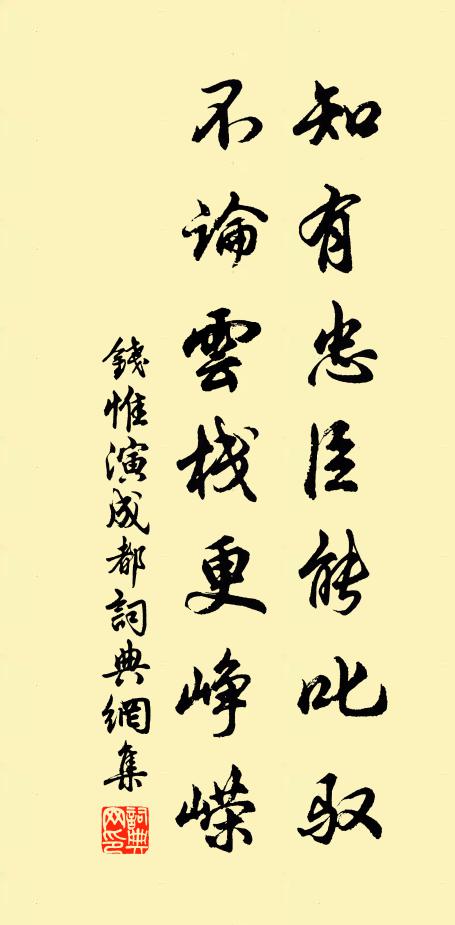 知有忠臣能叱馭
不論雲棧更崢嶸
錢惟演成都詞典網集
詞典
网印